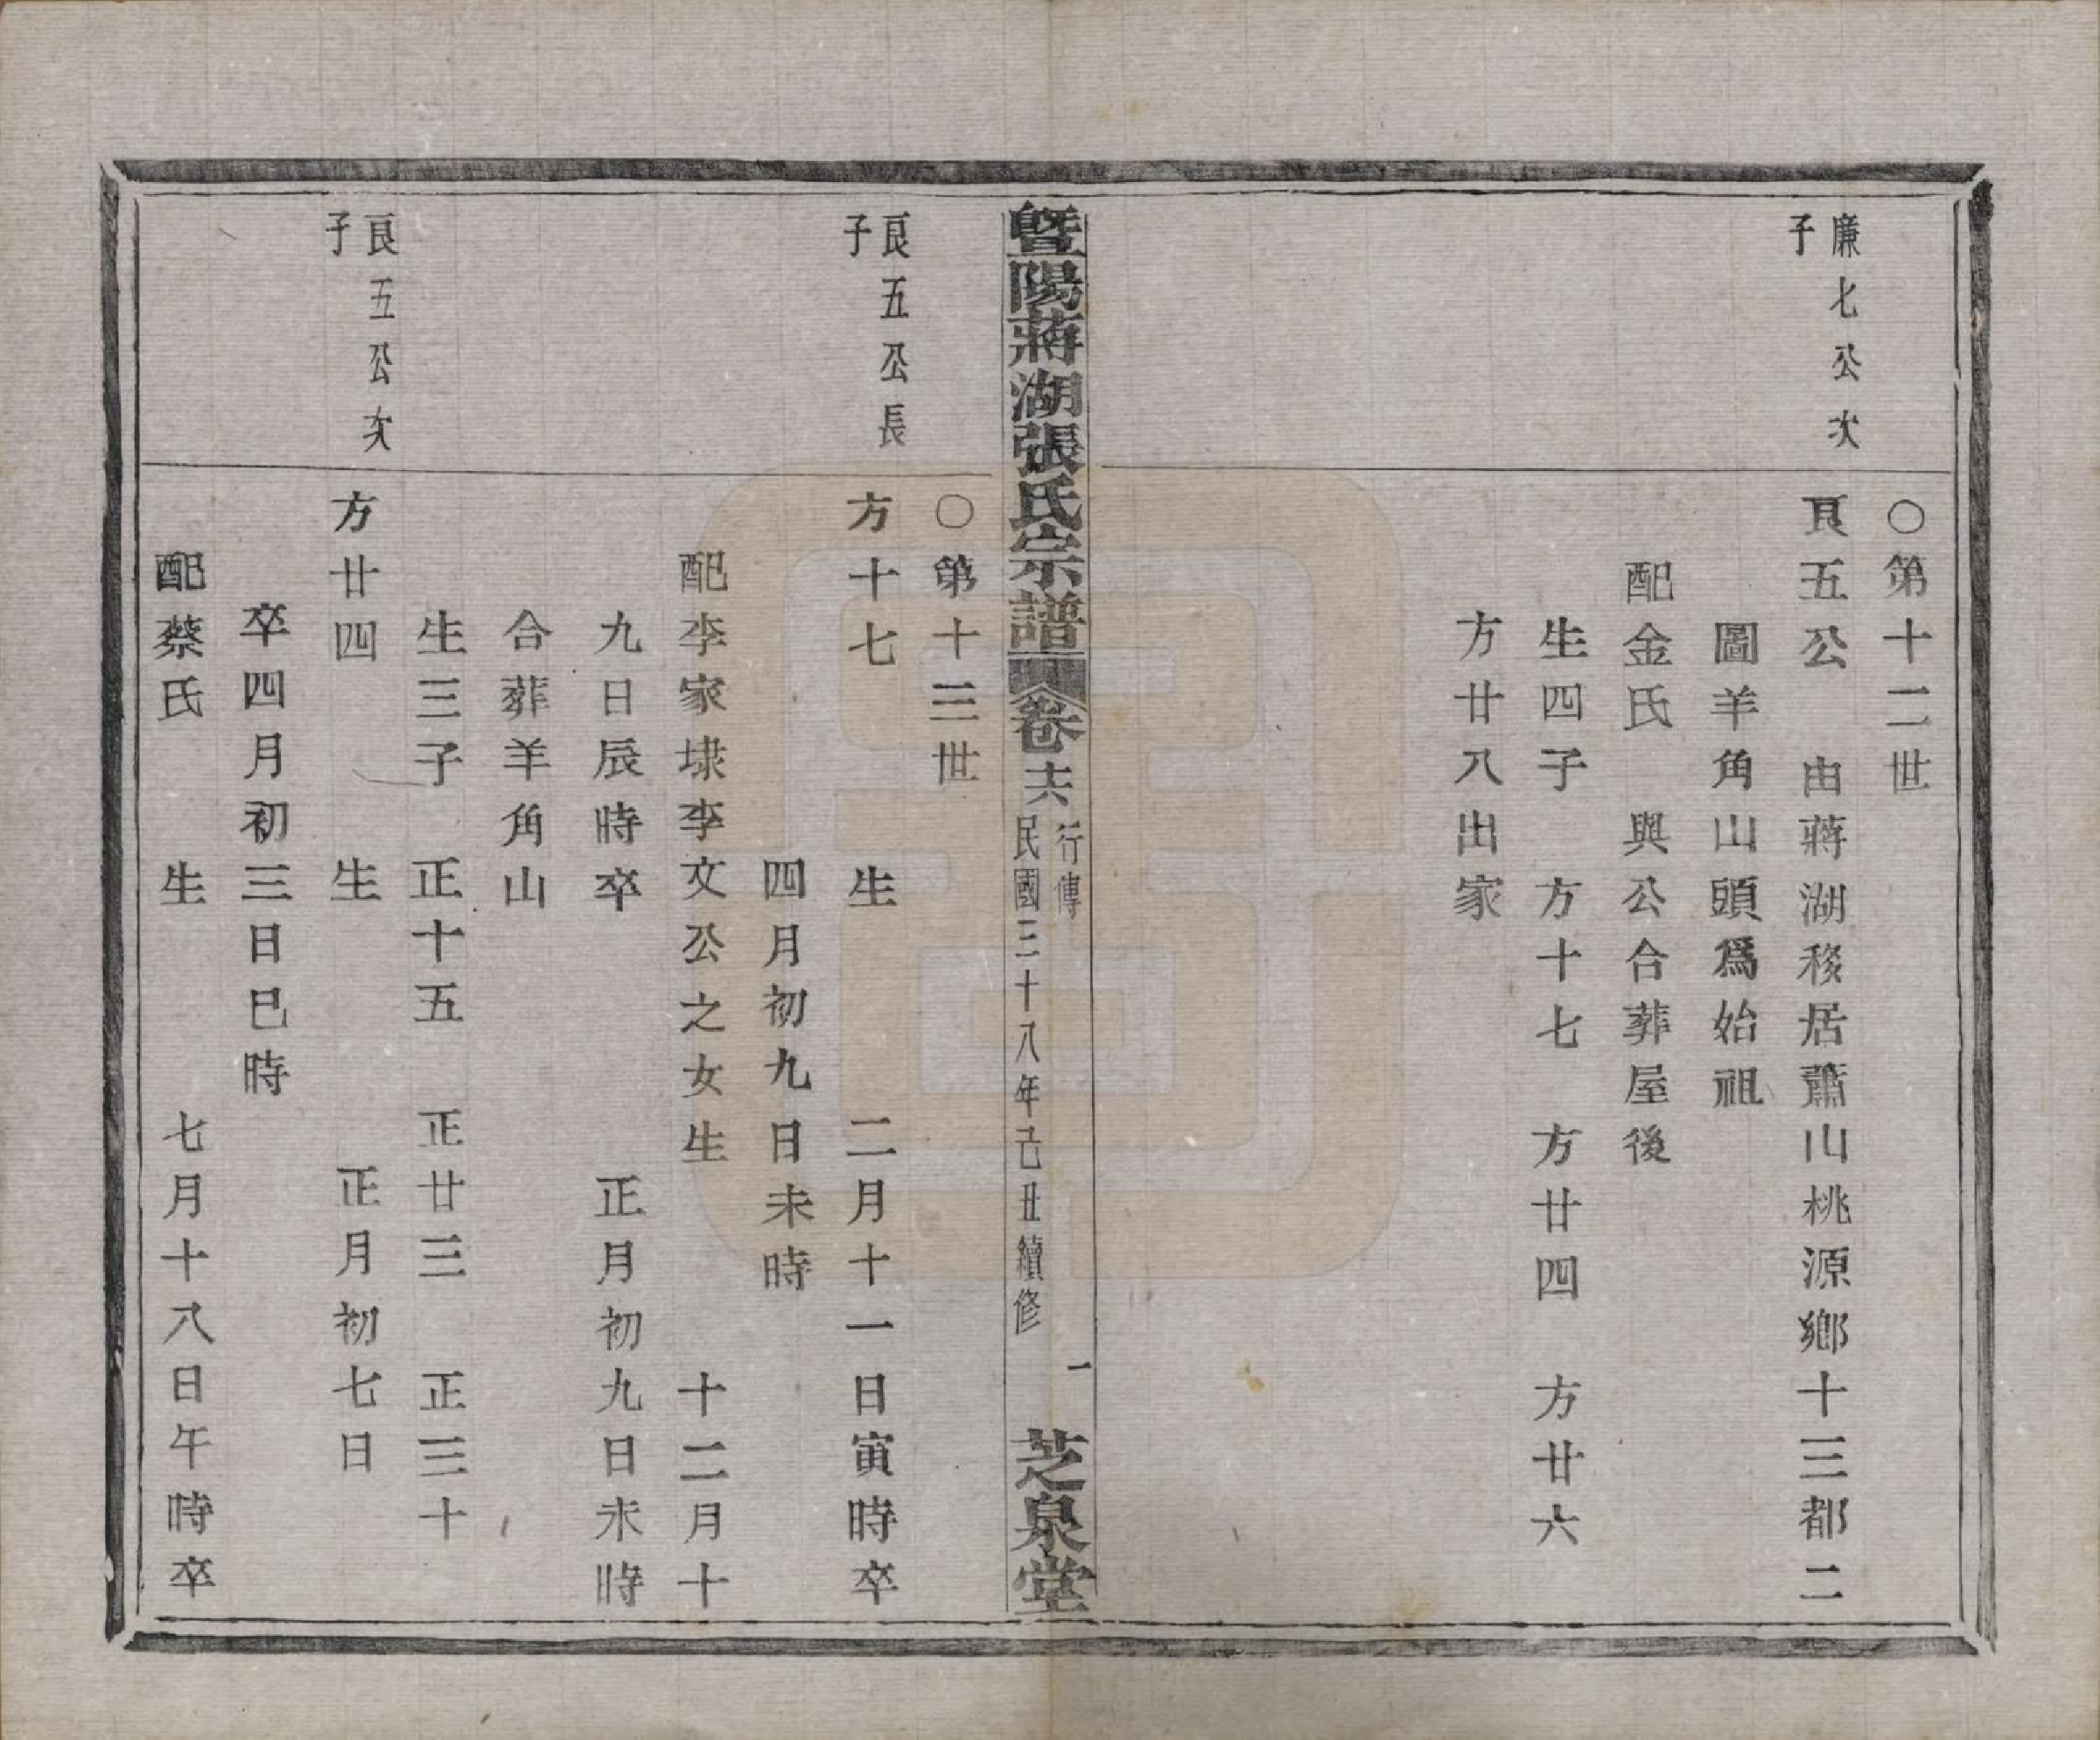 廉七公次
子
○第十二世
良五公　由蔣湖移居蕭山桃源鄉十三都二
圖羊角山頭爲始祖
配金氏　與公合葬屋後
生四子　方十七　方廿四　方廿六
方廿八出家
暨陽蔣湖張氏宗譜
卷十六
行傳
民國三十八年己丑續修
一
芝泉堂
○第十三世
良五公長
子
方十七　生　二月十一日寅時卒
四月初九日未時
配李家埭李文公之女生　十二月十
九日辰時卒　正月初九日未時
合葬羊角山
生三子　正十五　正廿三　正三十
良五公次
子
方廿四　生　正月初七日
卒四月初三日巳時
配蔡氏　生　七月十八日午時卒